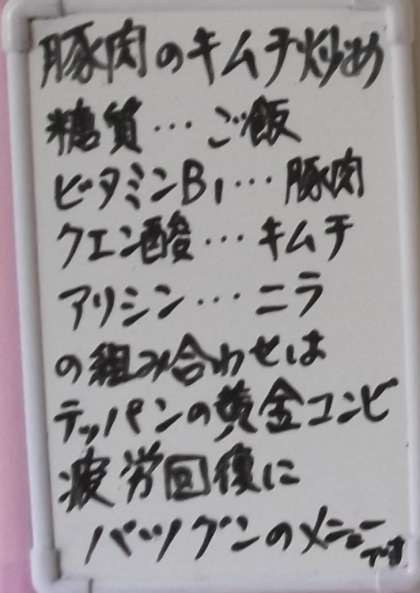 豚肉のキムチ炒め
糖質…ご飯
ビタミンB1…豚肉
クエン酸…キムチ
アリシン…ニラ
の組み合わせは
テッパンの黄金コンビ
疲労回復に
バツグンのメニューです